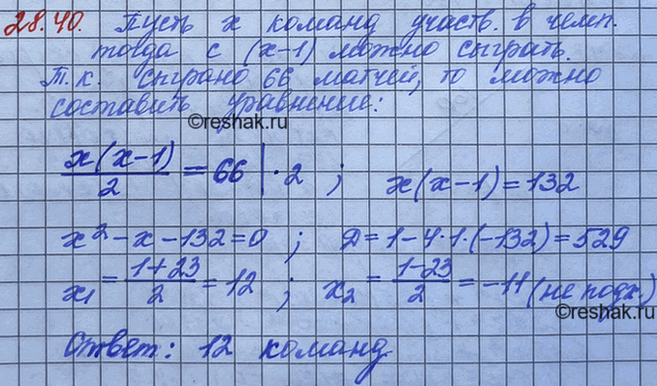 28.40. Пусть x команд участв. в чемп.
тогда с (x-1) можно сыграть.
Т.к. сыграно 66 матчей, то можно
составить уравнение:
©reshak.ru
x(x-1)/2 = 66 | · 2 ; x(x-1) = 132
x² - x - 132 = 0 ; D = 1 - 4·1·(-132) = 529
x₁ = (1+23)/2 = 12 ; x₂ = (1-23)/2 = -11 (не подх.)
©reshak.ru
Ответ: 12 команд